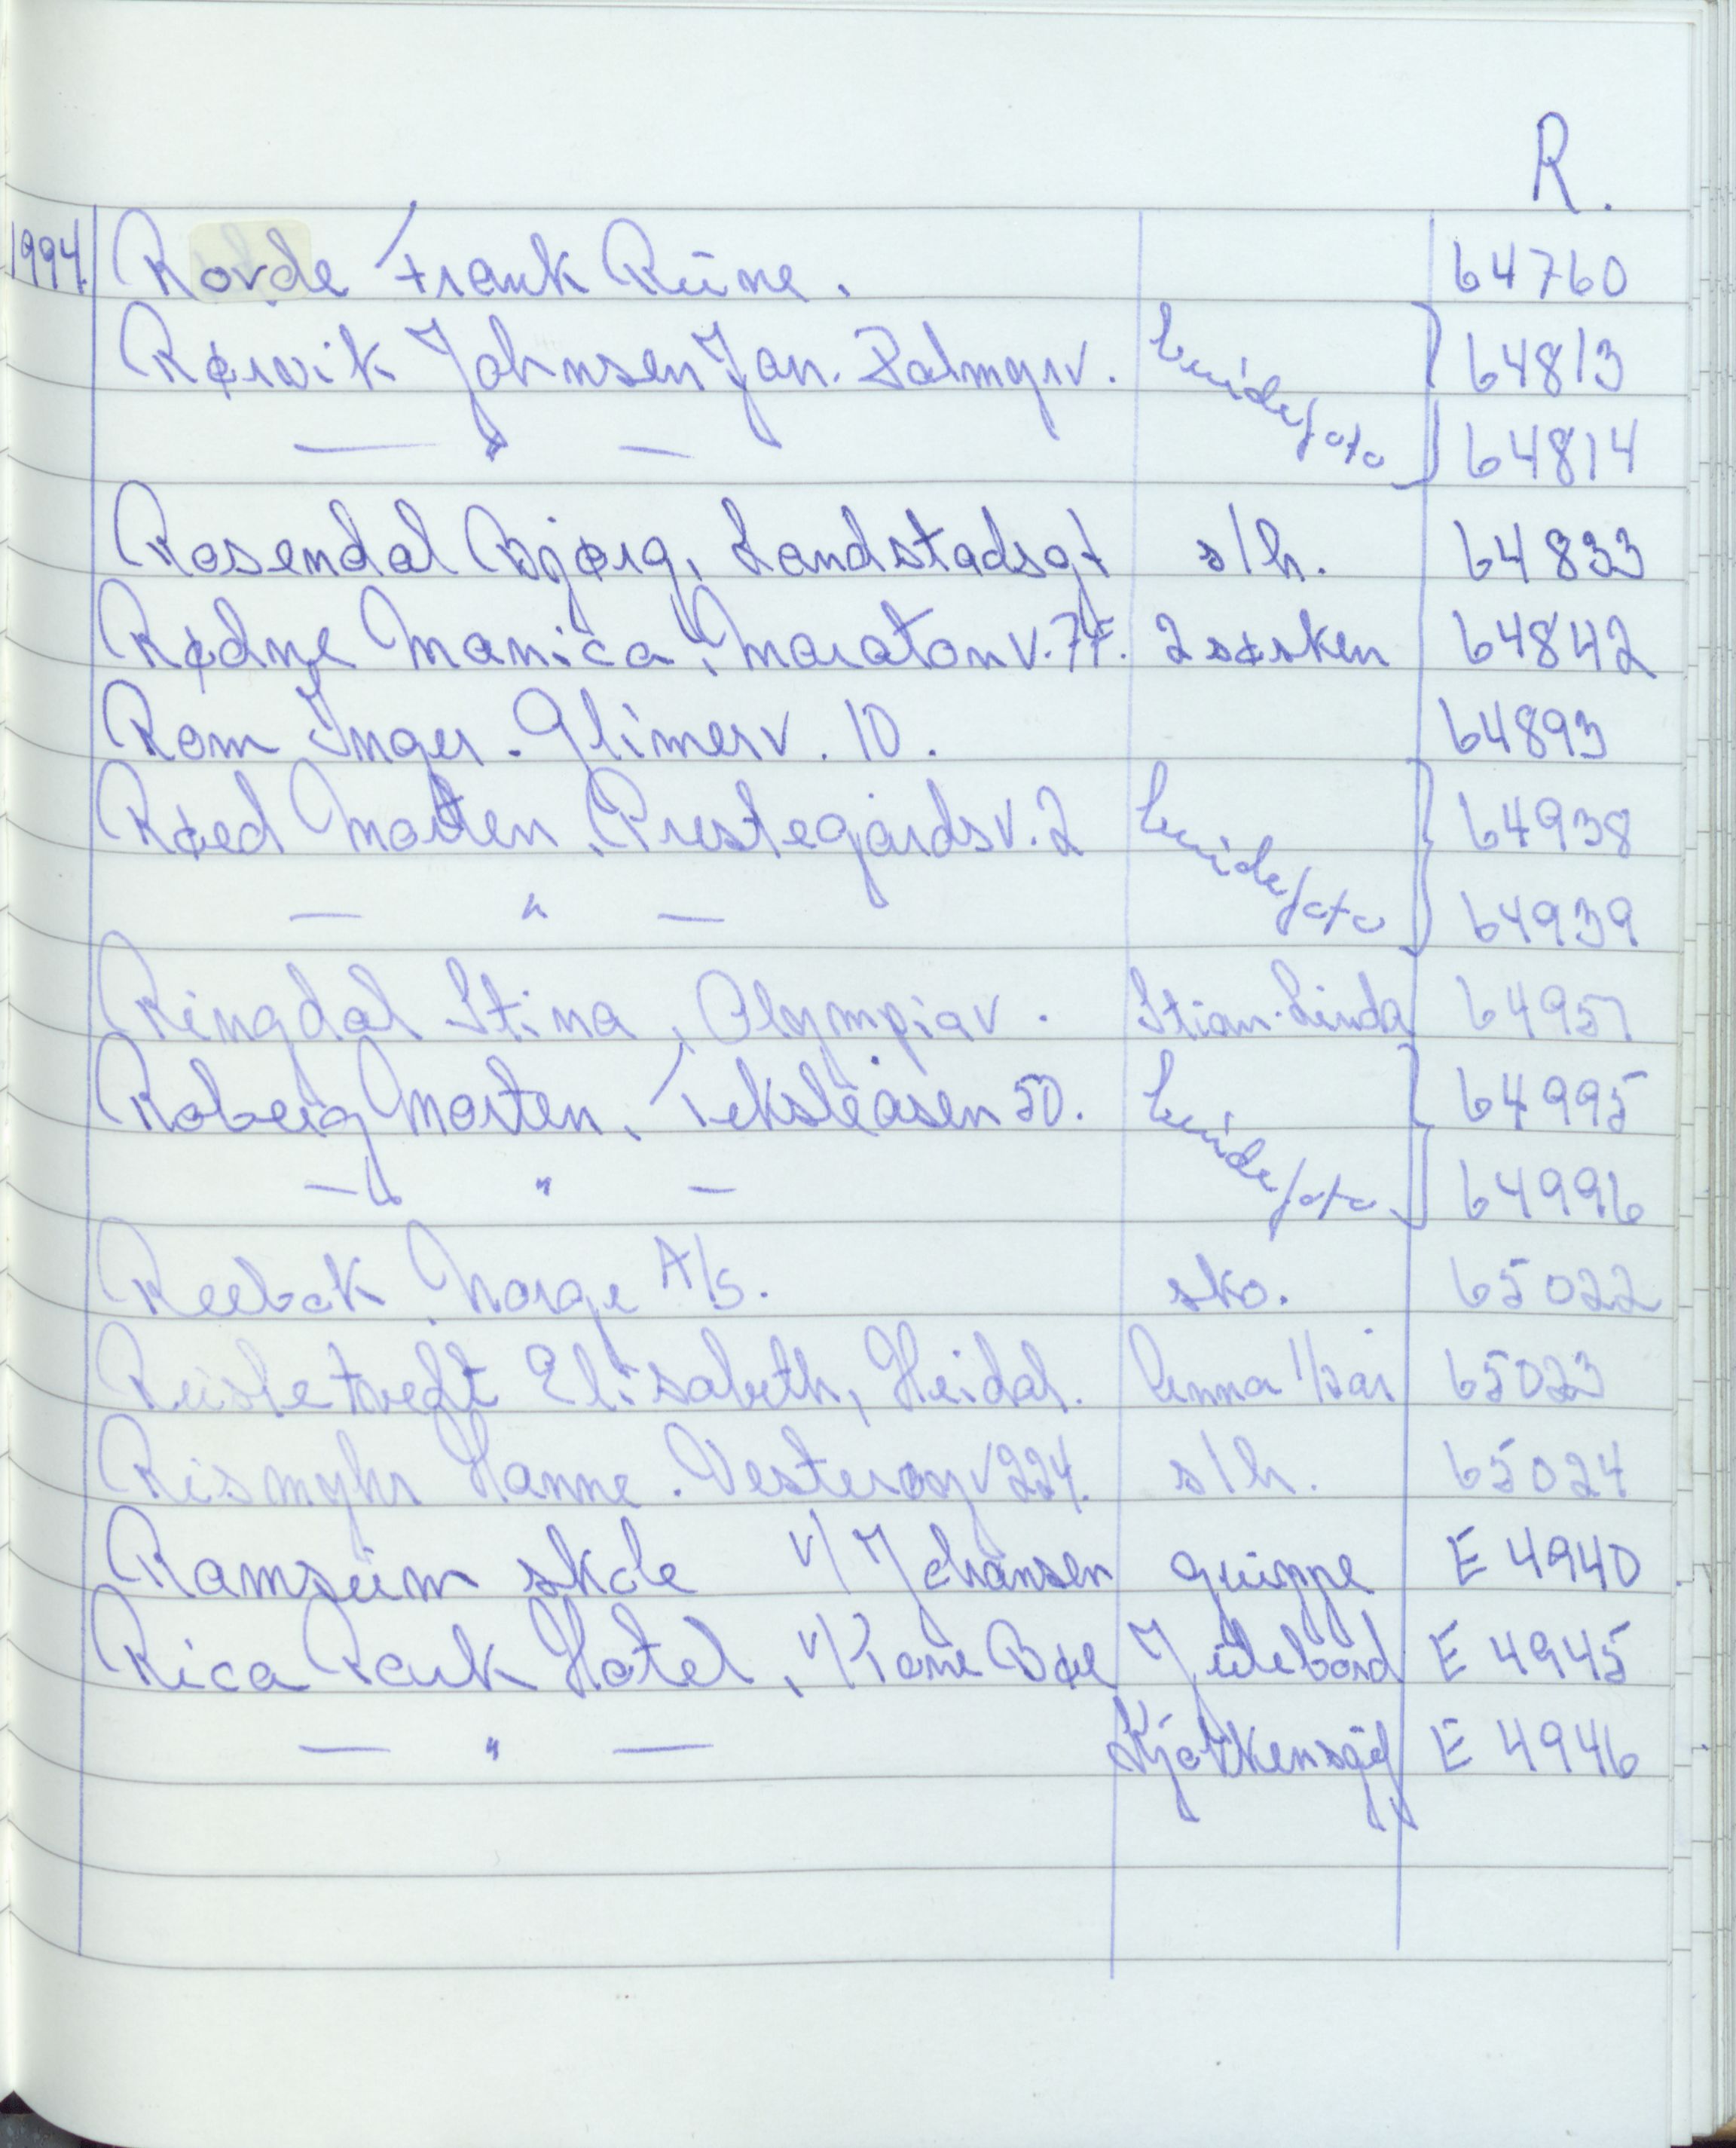 R.
1994 Rovde Frank Rune. 64760
Rørvik Johnsen Jan. Palmgrv. brudefoto 64813
— " — 64814
Rosendal Bjørg, Landstadsgt s/h. 64833
Rødne Monica, Maratonv. 7F. 2 søsken 64842
Rom Inger. Glimerv. 10. 64893
Røed Morten, Prestegårdsv. 2 brudefoto 64938
— " — 64939
Ringdal Stina, Olympiav. Stian-Linda 64957
Roberg Morten, Teksleåsen 50. brudefoto 64995
— " — 64996
Reebok Norge A/S. sko. 65022
Elisabeth, Heidal. Anna 1/2 år 65023
Rismyhr Hanne. Vesterøyv 224. s/h. 65024
Ramsum skole v/ Johansen gruppe E 4940
Rica Park Hotel, v/ Tone Bøe Julebord E 4945
— " — Kjøkkensjef E 4946